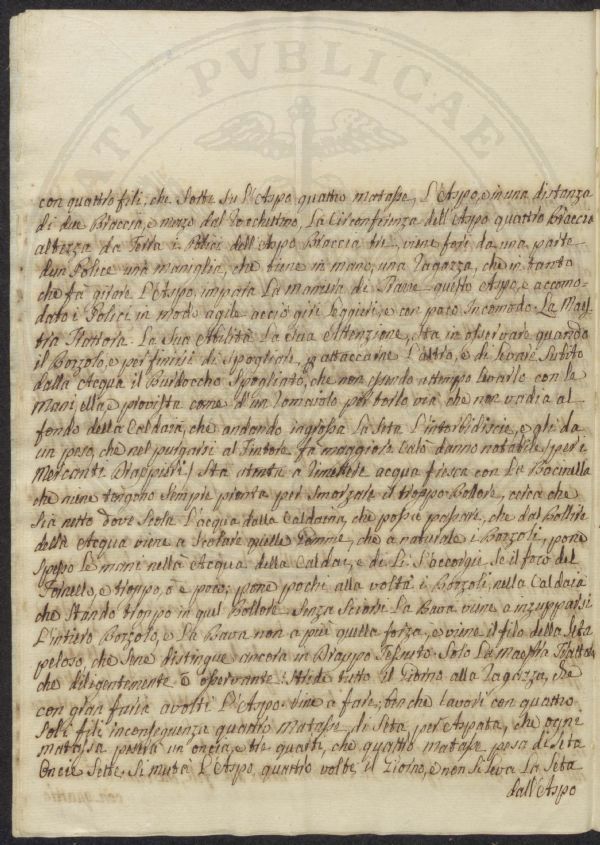 ATI PVBLICAE
con quattro fili, che sotto su l'Aspo quattro matasse, L'Aspo, e in una distanza
di due Braccia, e mezo dal Zocchettino, La Circonfirenza dell'Aspo quattro Braccia
altezza da Terra i Polici dell'Aspo Braccia tre, viene fori da una parte
d'un Police una maniglia, che tiene in mano, una Ragazza, che in tanto
che fà girare L'Aspo, impara La maniera di Trarre questo Aspo, e accomo-
dato i Polici in modo agile acciò giri Leggieri, e con poco Incomodo. La Maes-
tra Trattora. La Sua Abilità La Sua Attenzione, sta in osservare quando
il Bozzolo, e per finirsi di spogliare, attaccarne L'altro, e di levare Subito
dalla Acqua il Burdoccho Spogliato, che non essendo a tempo levarlo con le
Mani, ella è provista come d'un Romaiolo per torlo via che non vadia al
fondo della Caldaia, che andando ingrossa la Seta L'intorbidiscie, e gli da
un peso, che nel purgarsi al Tintore fa maggiore Calo danno notabile, per i
Mercanti Drappisti / Sta atenta a rimettere acqua fresca con La Bacinella
che ne tengono Sempre pronta per Smorzare il troppo Bollore, cerca che
Sia netto dove Scola L'acqua dalla Caldaia, che possa passare, che dal Bollire
della Acqua viene a Scolare quelle Gomme, che a naturale i Bozzoli, pone
spesso Le mani nella Acqua della Caldaia, e di Li S'accorgie Se il foco del
Fornello, e troppo, o è poco; pone pochi alla volta i Bozzoli nella Caldaia
che Stando troppo in quel Bollore Senza Sciorsi La Bava viene a inzupparsi
L'intiero Bozzolo, e La Bava non a più quella forza, e viene il filo della Seta
peloso, che Sene distingue ancora in Drappo Tessuto. Solo La Maestra Trattora
che diligentemente è osservante: Stride tutto il Giorno alla Ragazza, che
con gran furia avolti L'Aspo: viene a fare, benche lavori con quattro
Soli fili inconseguenza quattro Matasse di Seta, per Aspata, che ogni
matassa peserà un'oncia, e tre quarti, che quattro matasse pesa di Seta
Oncie Sette. Si muta L'Aspo quattro volte il Giorno, e non Si Leva La Seta
dall'Aspo